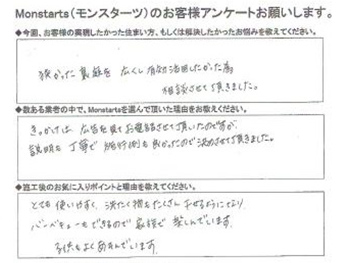 Monstarts(モンスターツ)のお客様アンケートお願いします。
◆今回、お客様の実現したかった住まい方、もしくは解決したかったお悩みを教えてください。
狭かった裏庭を広くし有効活用したかった為
相談させて頂きました。
◆数ある業者の中で、Monstartsを選んで頂いた理由をお教えください。
きっかけは、広告を見てお電話させて頂いたのですが、
説明も丁寧で施行例も良かったので決めさせて頂きました。
◆施工後のお気に入りポイントと理由を教えてください。
とても使いやすく、洗たく物もたくさん干せるようになり
バーベキューもできるので家族で楽しんでいます。
子供もよくあそんでいます。